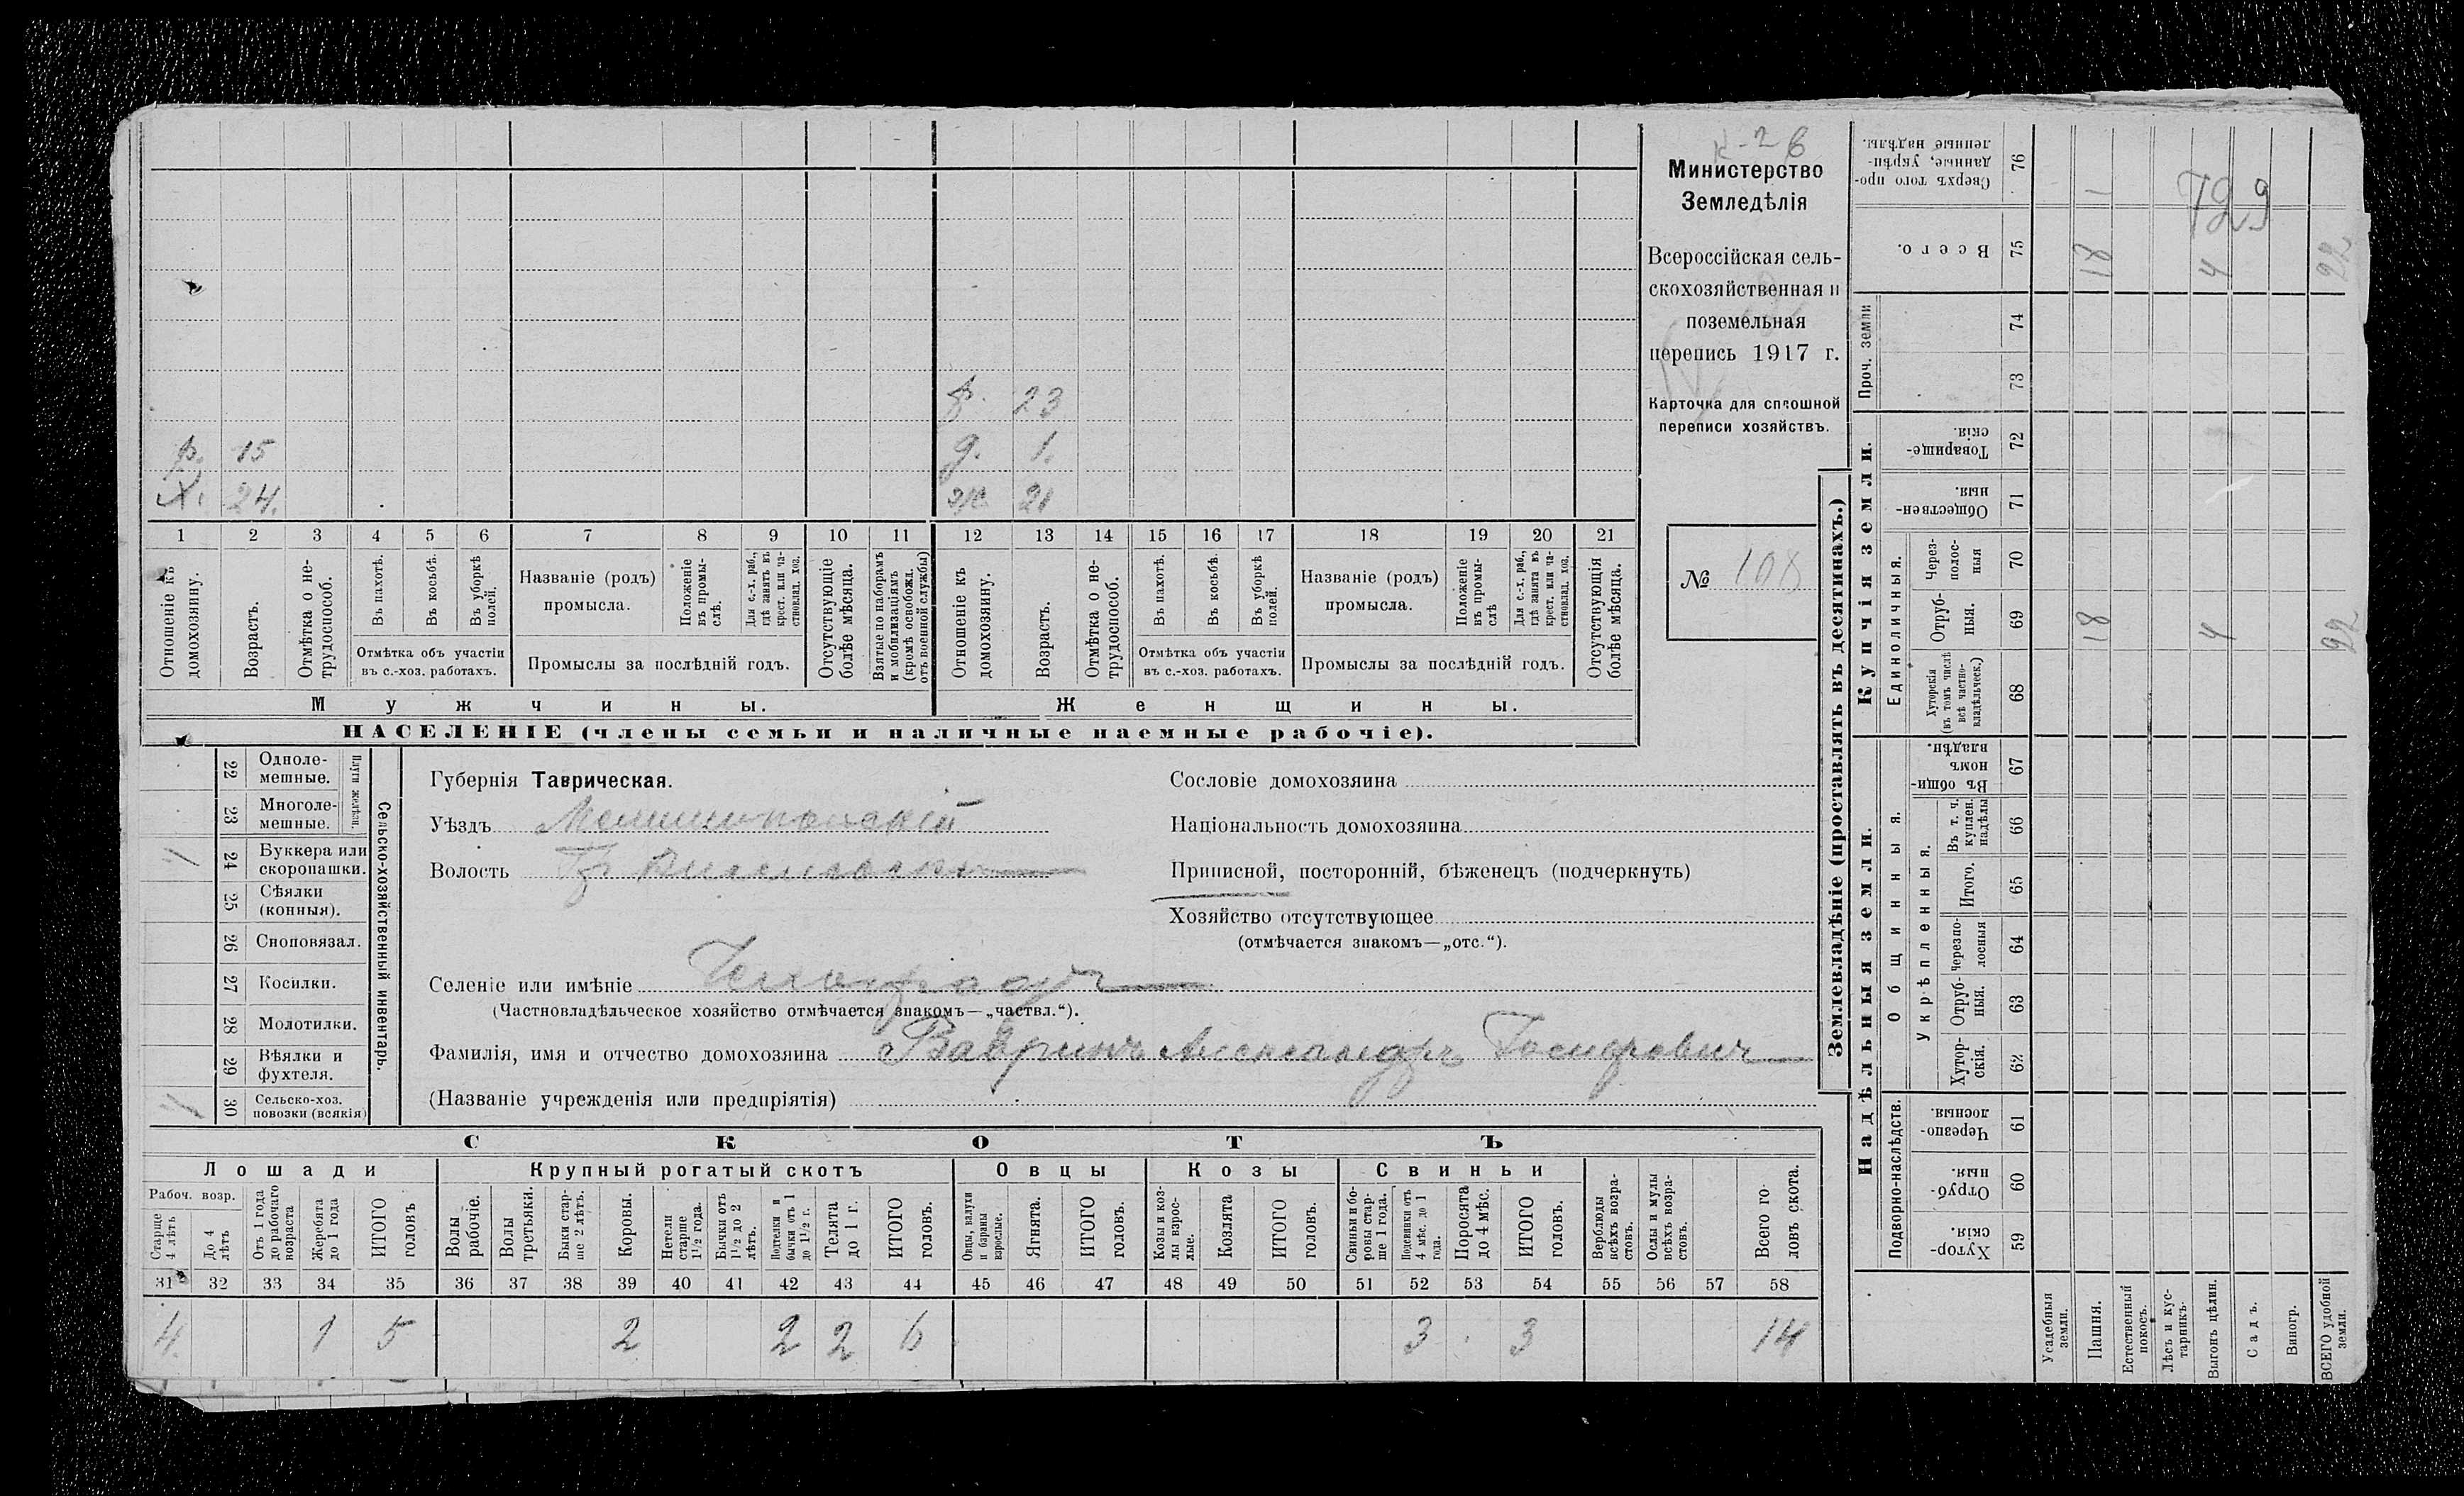 к-26
Министерство
Земледѣлія
Всероссійская сель-
скохозяйственная и
поземельная
перепись 1917 г.
Карточка для сплошной
переписи хозяйствъ.
№ 108
729
р. 23
р. 15 д. 1.
Х. 24. ж. 21
1 2 3 4 5 6 7 8 9 10 11 12 13 14 15 16 17 18 19 20 21
Отношеніе къ домохозяину.
Возрастъ.
Отмѣтка о не-трудоспособ.
Въ пахотѣ.
Въ косьбѣ.
Въ уборкѣ полей.
Отмѣтка объ участіи
въ с.-хоз. работахъ.
Названіе (родъ)
промысла.
Положеніе въ промы-слѣ.
Для с.-х. раб., гдѣ занятъ въ крест. или ча-стновлад. хоз.
Промыслы за послѣдній годъ.
Отсутствующіе болѣе мѣсяца.
Взятые по наборамъ и мобилизаціямъ (кромѣ освобожд. отъ военной службы)
Отношеніе къ домохозяину.
Возрастъ.
Отмѣтка о не-трудоспособ.
Въ пахотѣ.
Въ косьбѣ.
Въ уборкѣ полей.
Отмѣтка объ участіи
въ с.-хоз. работахъ.
Названіе (родъ)
промысла.
Положеніе въ промы-слѣ
Для с.-х. раб., гдѣ занята въ крест. или ча-стновлад. хоз.
Промыслы за послѣдній годъ.
Отсутствующія болѣе мѣсяца.
Мужчины. Женщины.
НАСЕЛЕНІЕ (члены семьи и наличные наемные рабочіе).
Сельско-хозяйственный инвентарь.
Плуги желѣзн.
22 Однолемешные.
23 Многолемешные.
1 24 Буккера или скоропашки.
25 Сѣялки (конныя).
26 Сноповязал.
27 Косилки.
28 Молотилки.
29 Вѣялки и фухтеля.
1 30 Сельско-хоз. повозки (всякія)
Губернія Таврическая.
Уѣздъ Мелитопольскій
Волость
Селеніе или имѣніе
(Частновладѣльческое хозяйство отмѣчается знакомъ—„частвл.“).
Фамилія, имя и отчество домохозяина Вавринъ Александръ Іосифовичъ
(Названіе учрежденія или предпріятія)
Сословіе домохозяина
Національность домохозяина
Приписной, посторонній, бѣженецъ (подчеркнуть)
Хозяйство отсутствующее
(отмѣчается знакомъ—„отс.“).
СКОТЪ
Лошади Крупный рогатый скотъ Овцы Козы Свиньи
Рабоч. возр.
Старше 4 лѣтъ
До 4 лѣтъ
Отъ 1 года до рабочаго возраста
Жеребята до 1 года
ИТОГО головъ
Волы рабочіе.
Волы третьяки.
Быки стар-ше 2 лѣтъ.
Коровы.
Нетели старше 1½ года.
Бычки отъ 1½ до 2 лѣтъ.
Подтелки и бычки отъ 1 до 1½ г.
Телята до 1 г.
ИТОГО головъ.
Овцы, валухи и бараны взрослые.
Ягнята.
ИТОГО головъ.
Козы и коз-лы взрос-лые.
Козлята
ИТОГО головъ.
Свиньи и бо-ровы стар-ше 1 года.
Подсвинки отъ 4 мѣс. до 1 года.
Поросята до 4 мѣс.
ИТОГО головъ.
Верблюды всѣхъ возра-стовъ.
Ослы и мулы всѣхъ возра-стовъ.
Всего го-ловъ скота.
31 32 33 34 35 36 37 38 39 40 41 42 43 44 45 46 47 48 49 50 51 52 53 54 55 56 57 58
4. 1 5 2 2 2 6 3 3 14
Землевладѣніе (проставлять въ десятинахъ.)
Надѣльныя земли. Купчія земли. Проч. земли
Подворно-наслѣдств. Общинныя. Единоличныя.
Укрѣпленныя.
59 Хутор-скія.
60 Отруб-ныя.
61 Черезпо-лосныя.
62 Хутор-скія.
63 Отруб-ныя.
64 Черезпо-лосныя
65 Итого.
66 Въ т. ч. куплен. надѣлы
67 Въ общи-номъ владѣн.
68 Хуторскія (въ томъ числѣ всѣ частно-владѣльческ.)
69 Отруб-ныя.
70 Через-полос-ныя
71 Обществен-ныя.
72 Товарище-скія.
73 74
75 Всего.
76 Сверхъ того про-данные, укрѣп-ленные надѣлы.
Усадебныя земли.
Пашня. 18 18 1
Естественный покосъ.
Лѣсъ и кус-тарникъ.
Выгонъ цѣлин. 4 4
Садъ.
Виногр.
ВСЕГО удобной земли. 22 22